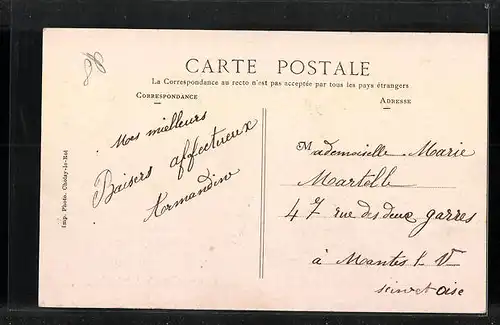 CARTE POSTALE
La Correspondance au recto n'est pas acceptée par tous les pays étrangers
CORRESPONDANCE
ADRESSE
Mes mielleurs
Baisers affectueux
Armandine
Mademoiselle Marie
Martelle
47 rue des deux garres
à Mantes s. V
seine et oise
Imp. Photo. Choisy-le-Roi